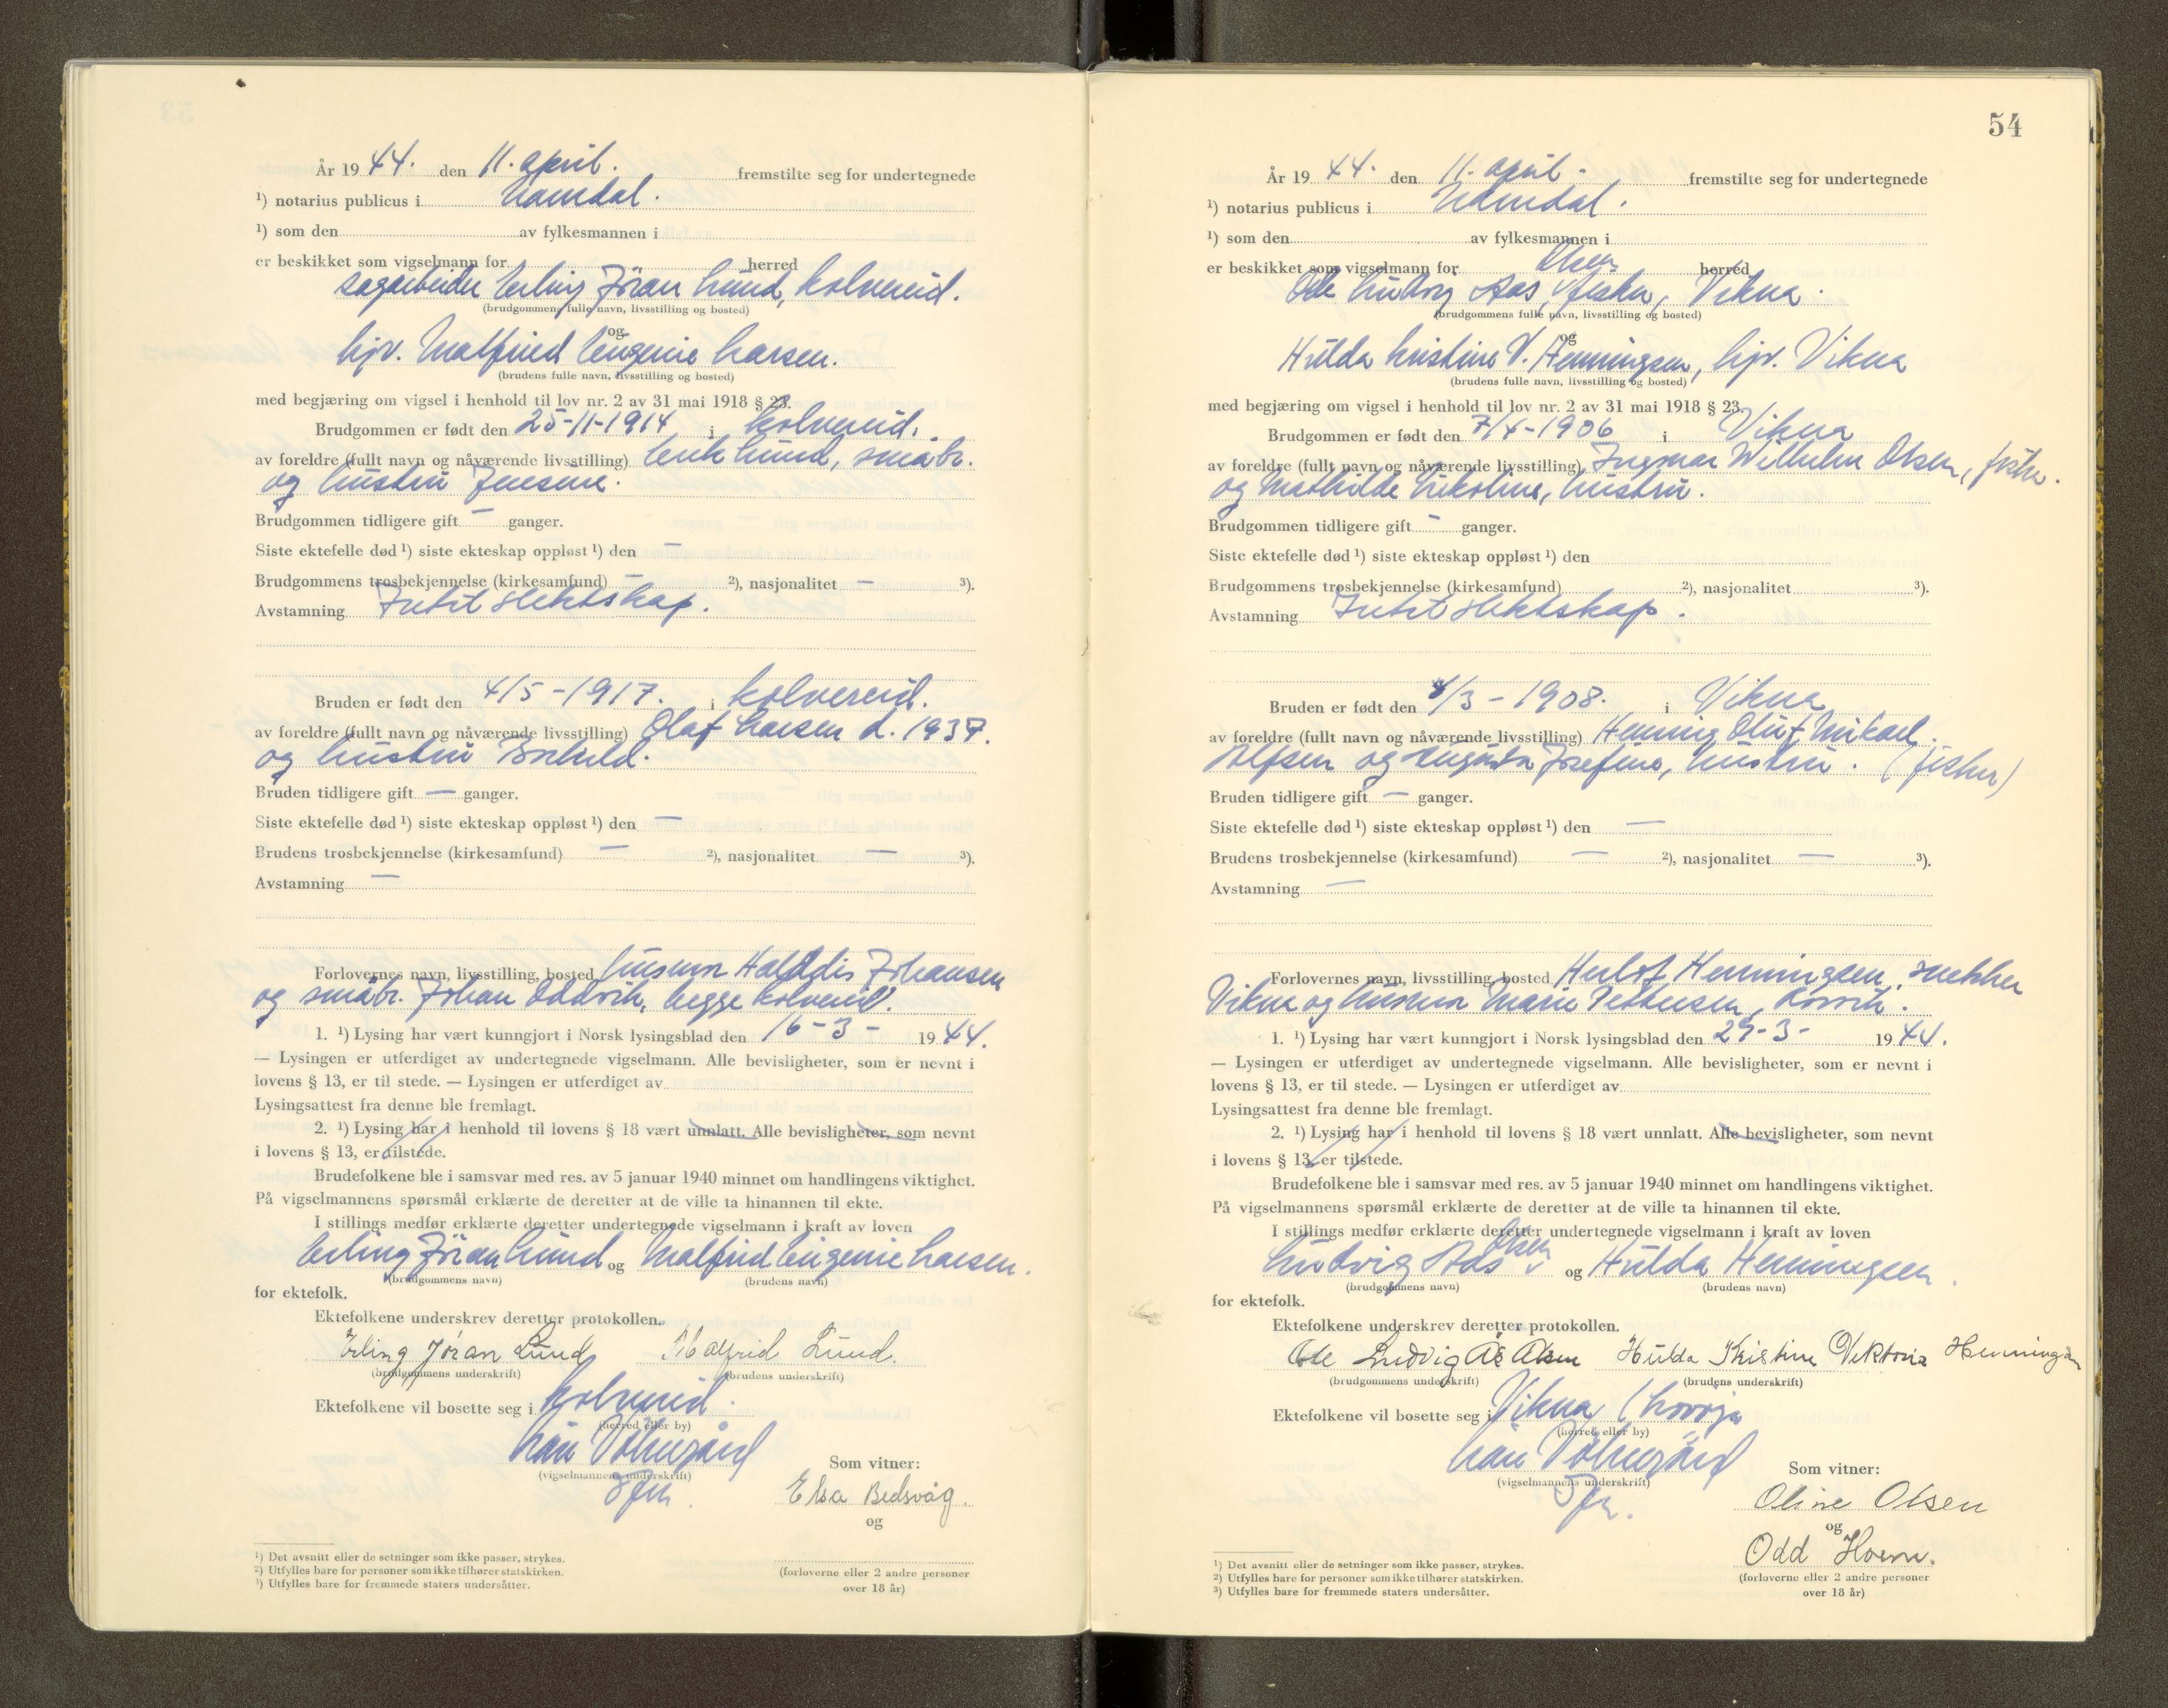 År 1944. den 11. april. fremstilte seg for undertegnede
¹) notarius publicus i Namdal.
¹) som den av fylkesmannen i
er beskikket som vigselmann for herred
sagarbeider Erling Jöran Lund, Kolvereid.
(brudgommens fulle navn, livsstilling og bosted)
og
hjv. Malfrid Eugenie Larsen.
(brudens fulle navn, livsstilling og bosted)
med begjæring om vigsel i henhold til lov nr. 2 av 31 mai 1918 § 23.
Brudgommen er født den 25-11-1914 i Kolvereid.
av foreldre (fullt navn og nåværende livsstilling) Erik Lund, småbr.
og hustru Jensine.
Brudgommen tidligere gift — ganger.
Siste ektefelle død ¹) siste ekteskap oppløst ¹) den —
Brudgommens trosbekjennelse (kirkesamfund) — ²), nasjonalitet — ³).
Avstamning Intet slektskap.
Bruden er født den 4/5-1917. i Kolvereid.
av foreldre (fullt navn og nåværende livsstilling) Olaf Larsen d. 1937.
og hustru Borhild.
Bruden tidligere gift — ganger.
Siste ektefelle død ¹) siste ekteskap oppløst ¹) den —
Brudens trosbekjennelse (kirkesamfund) — ²), nasjonalitet — ³).
Avstamning —
Forlovernes navn, livsstilling, bosted husmor Halddis Johansen
og småbr. Johan Oddvik, begge Kolvereid.
1. ¹) Lysing har vært kunngjort i Norsk lysingsblad den 16-3- 1944.
— Lysingen er utferdiget av undertegnede vigselmann. Alle bevisligheter, som er nevnt i
lovens § 13, er til stede. — Lysingen er utferdiget av
Lysingsattest fra denne ble fremlagt.
2. ¹) Lysing har i henhold til lovens § 18 vært unnlatt. Alle bevisligheter, som nevnt
i lovens § 13, er tilstede.
Brudefolkene ble i samsvar med res. av 5 januar 1940 minnet om handlingens viktighet.
På vigselmannens spørsmål erklærte de deretter at de ville ta hinannen til ekte.
I stillings medfør erklærte deretter undertegnede vigselmann i kraft av loven
Erling Jöran Lund og Malfrid Eugenie Larsen.
(brudgommens navn) (brudens navn)
for ektefolk.
Ektefolkene underskrev deretter protokollen.
Erling Jöran Lund Malfrid Lund.
(brudgommens underskrift) (brudens underskrift)
Ektefolkene vil bosette seg i Kolvereid.
(herred eller by)
(vigselmannens underskrift)
Som vitner:
Elsa Bedsvåg.
og
(forloverne eller 2 andre personer
over 18 år)
¹) Det avsnitt eller de setninger som ikke passer, strykes.
²) Utfylles bare for personer som ikke tilhører statskirken.
³) Utfylles bare for fremmede staters undersåtter.
54
År 1944. den 11. april. fremstilte seg for undertegnede
¹) notarius publicus i Namdal.
¹) som den av fylkesmannen i
er beskikket som vigselmann for herred
Ole Ludvig Aas Olsen, fisker, Vikna.
(brudgommens fulle navn, livsstilling og bosted)
og
Hulda Kristine V. Henningsen, hjv. Vikna
(brudens fulle navn, livsstilling og bosted)
med begjæring om vigsel i henhold til lov nr. 2 av 31 mai 1918 § 23.
Brudgommen er født den 7/4-1906 i Vikna
av foreldre (fullt navn og nåværende livsstilling) Ingmar Wilhelm Olsen, fisker.
og Mathilde Nikoline, hustru.
Brudgommen tidligere gift — ganger.
Siste ektefelle død ¹) siste ekteskap oppløst ¹) den
Brudgommens trosbekjennelse (kirkesamfund) ²), nasjonalitet ³).
Avstamning Intet slektskap.
Bruden er født den /3-1908. i Vikna
av foreldre (fullt navn og nåværende livsstilling) Henning Oluf Mikael
Alfsen og Augusta Josefine, hustru. (fisker)
Bruden tidligere gift — ganger.
Siste ektefelle død ¹) siste ekteskap oppløst ¹) den —
Brudens trosbekjennelse (kirkesamfund) — ²), nasjonalitet — ³).
Avstamning —
Forlovernes navn, livsstilling, bosted Henningsen, snekker
Vikna og husmor Marie Pettersen, Rørvik.
1. ¹) Lysing har vært kunngjort i Norsk lysingsblad den 29-3- 1944.
— Lysingen er utferdiget av undertegnede vigselmann. Alle bevisligheter, som er nevnt i
lovens § 13, er til stede. — Lysingen er utferdiget av
Lysingsattest fra denne ble fremlagt.
2. ¹) Lysing har i henhold til lovens § 18 vært unnlatt. Alle bevisligheter, som nevnt
i lovens § 13, er tilstede.
Brudefolkene ble i samsvar med res. av 5 januar 1940 minnet om handlingens viktighet.
På vigselmannens spørsmål erklærte de deretter at de ville ta hinannen til ekte.
I stillings medfør erklærte deretter undertegnede vigselmann i kraft av loven
Ludvig Aas Olsen og Hulda Henningsen.
(brudgommens navn) (brudens navn)
for ektefolk.
Ektefolkene underskrev deretter protokollen.
Ole Ludvig Ås Olsen Hulda Kristine Viktoria Henningsen
(brudgommens underskrift) (brudens underskrift)
Ektefolkene vil bosette seg i Vikna
(herred eller by)
(vigselmannens underskrift)
Som vitner:
Oline Olsen
og
Odd Horn.
(forloverne eller 2 andre personer
over 18 år)
¹) Det avsnitt eller de setninger som ikke passer, strykes.
²) Utfylles bare for personer som ikke tilhører statskirken.
³) Utfylles bare for fremmede staters undersåtter.